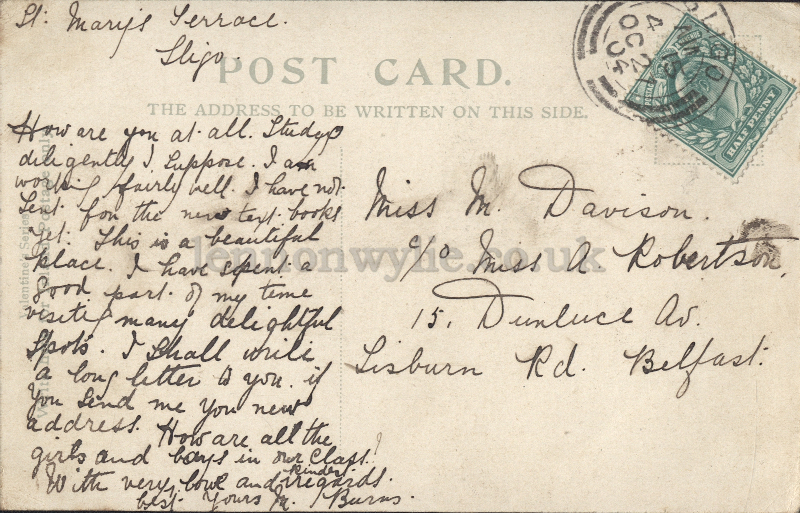 St. Mary's Terrace.
Sligo.
POST CARD.
THE ADDRESS TO BE WRITTEN ON THIS SIDE.
How are you at all. Studyg
diligently I suppose. I am
working fairly well. I have not
sent for the new text-books
yet. This is a beautiful
place. I have spent a
good part of my time
visitg many delightful
spots. I shall write
a long letter to you if
you send me you new
address. How are all the
girls and boys in our Class!
With very love and kindest regards.
best Yours M. Burns.
Miss M. Davison.
c/o Miss A. Robertson,
15, Dunluce Av.
Lisburn Rd. Belfast.
Valentine's Series
lennonwylie.co.uk
SLIGO
OC 2
04
HALF PENNY